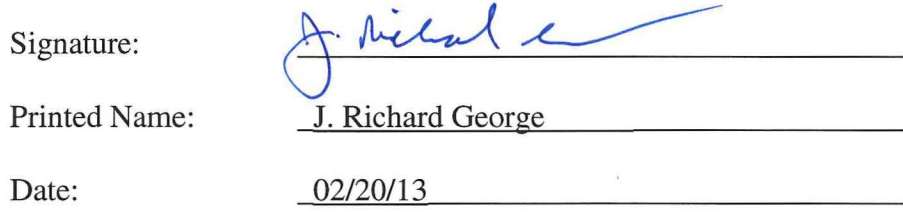 Signature: J. Richard
Printed Name: J. Richard George
Date: 02/20/13